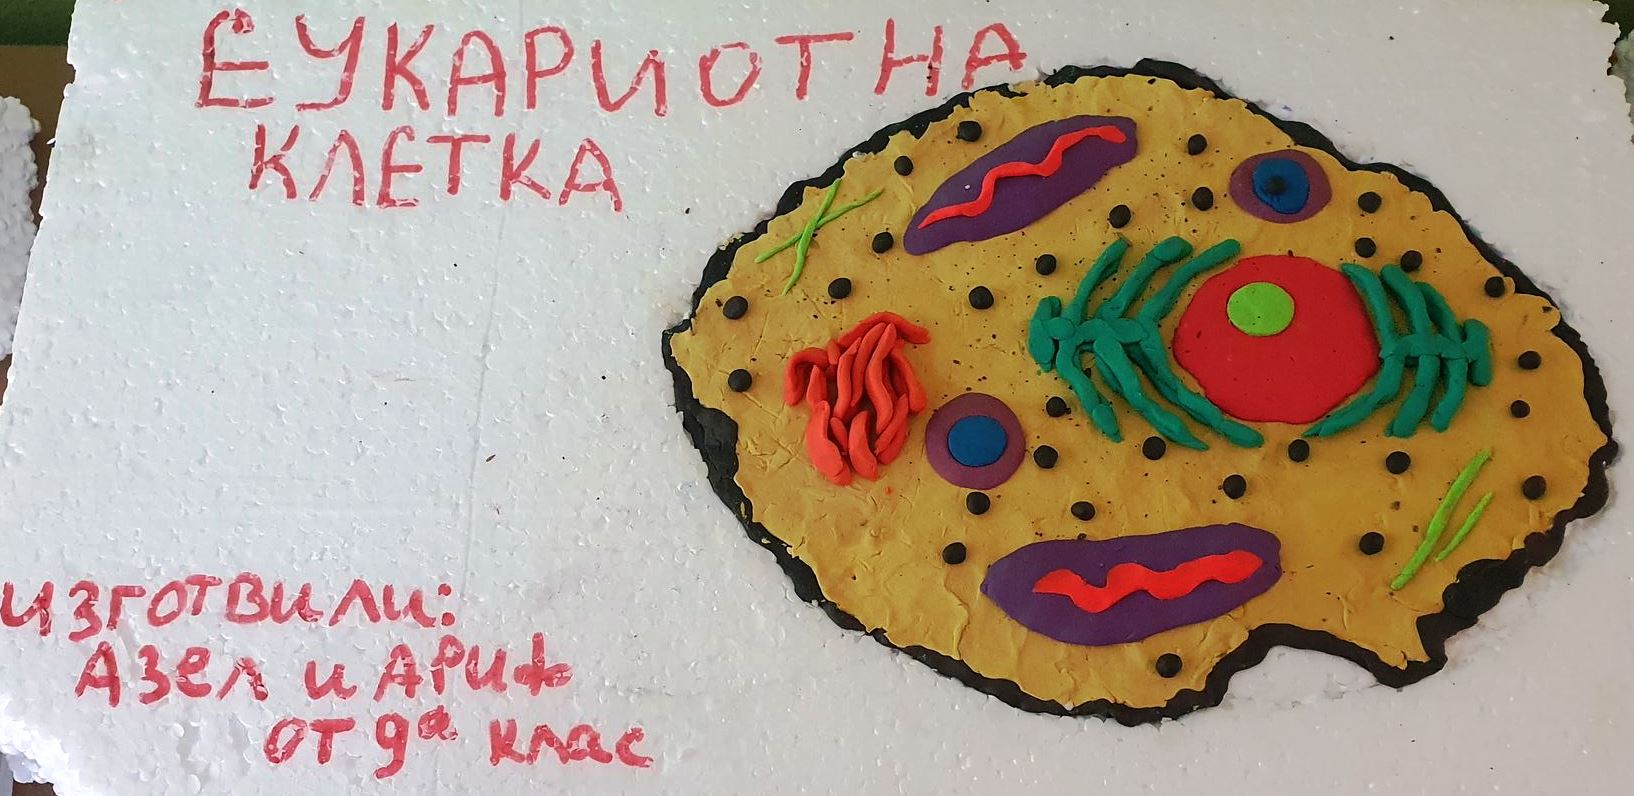 ЕУКАРИОТНА
КЛЕТКА
изготвили:
Азел и Ариф
от 9а клас